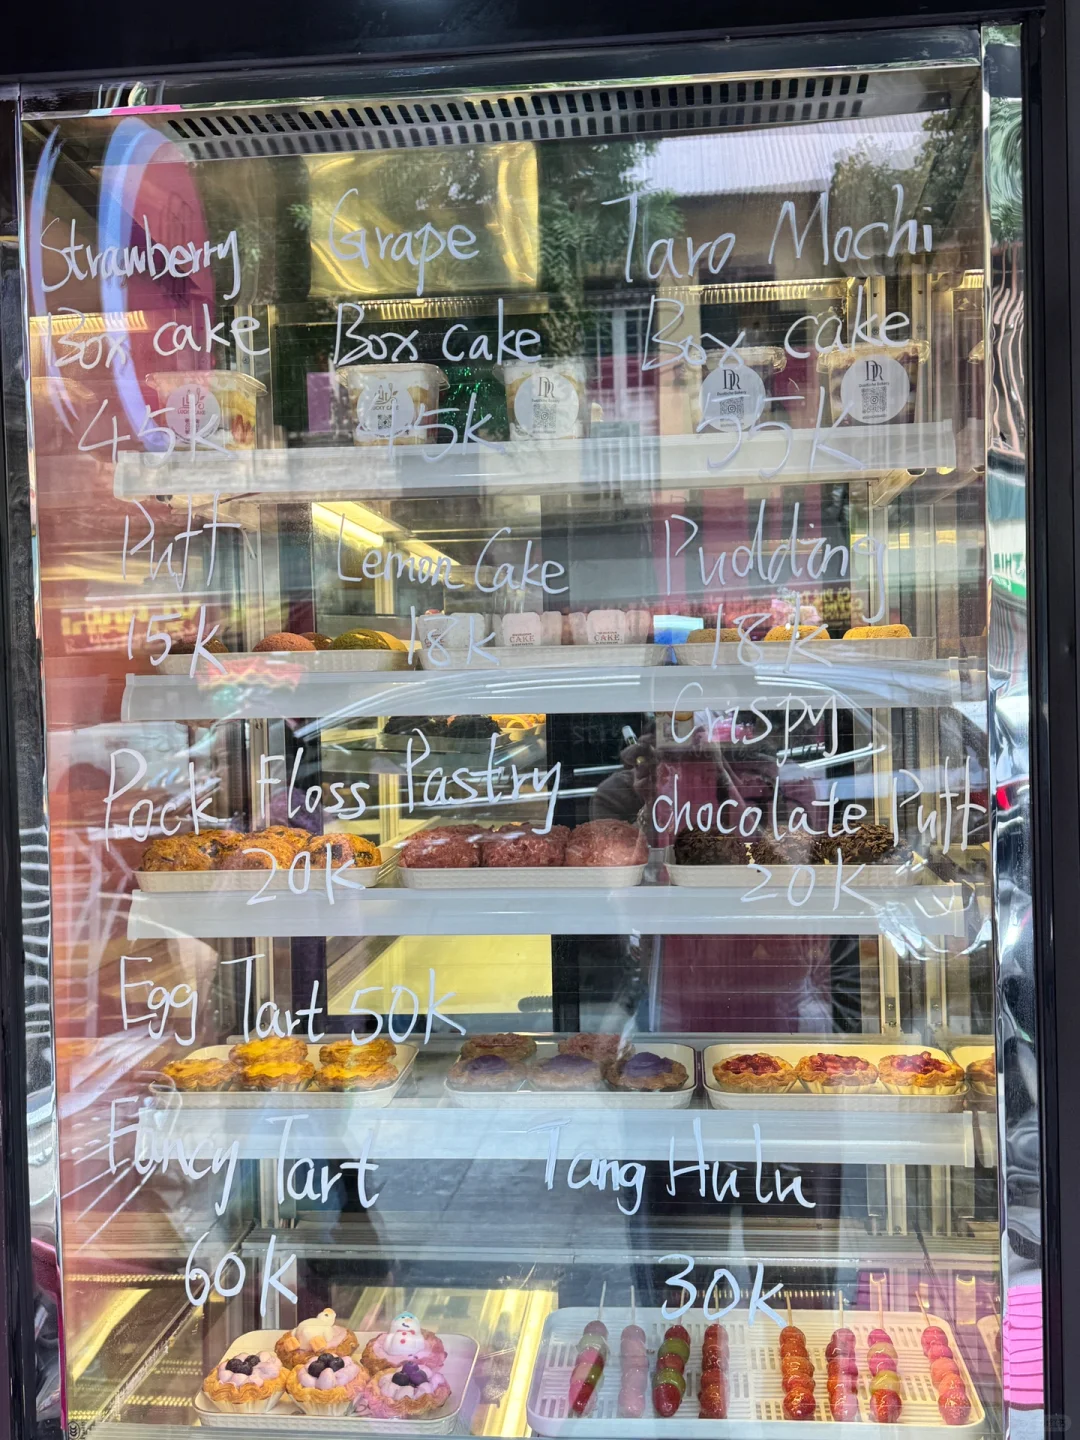 Strawberry
Box cake
45k
Grape
Box cake
45k
Taro Mochi
Box cake
55k
Puff
15k
Lemon Cake
18k
Pudding
18k
Pock Floss Pastry
20k
Crispy
chocolate Puff
20k
Egg Tart 50k
Fancy Tart
60k
Tang Hulu
30k
DR
DR
DR
CAKE
CAKE